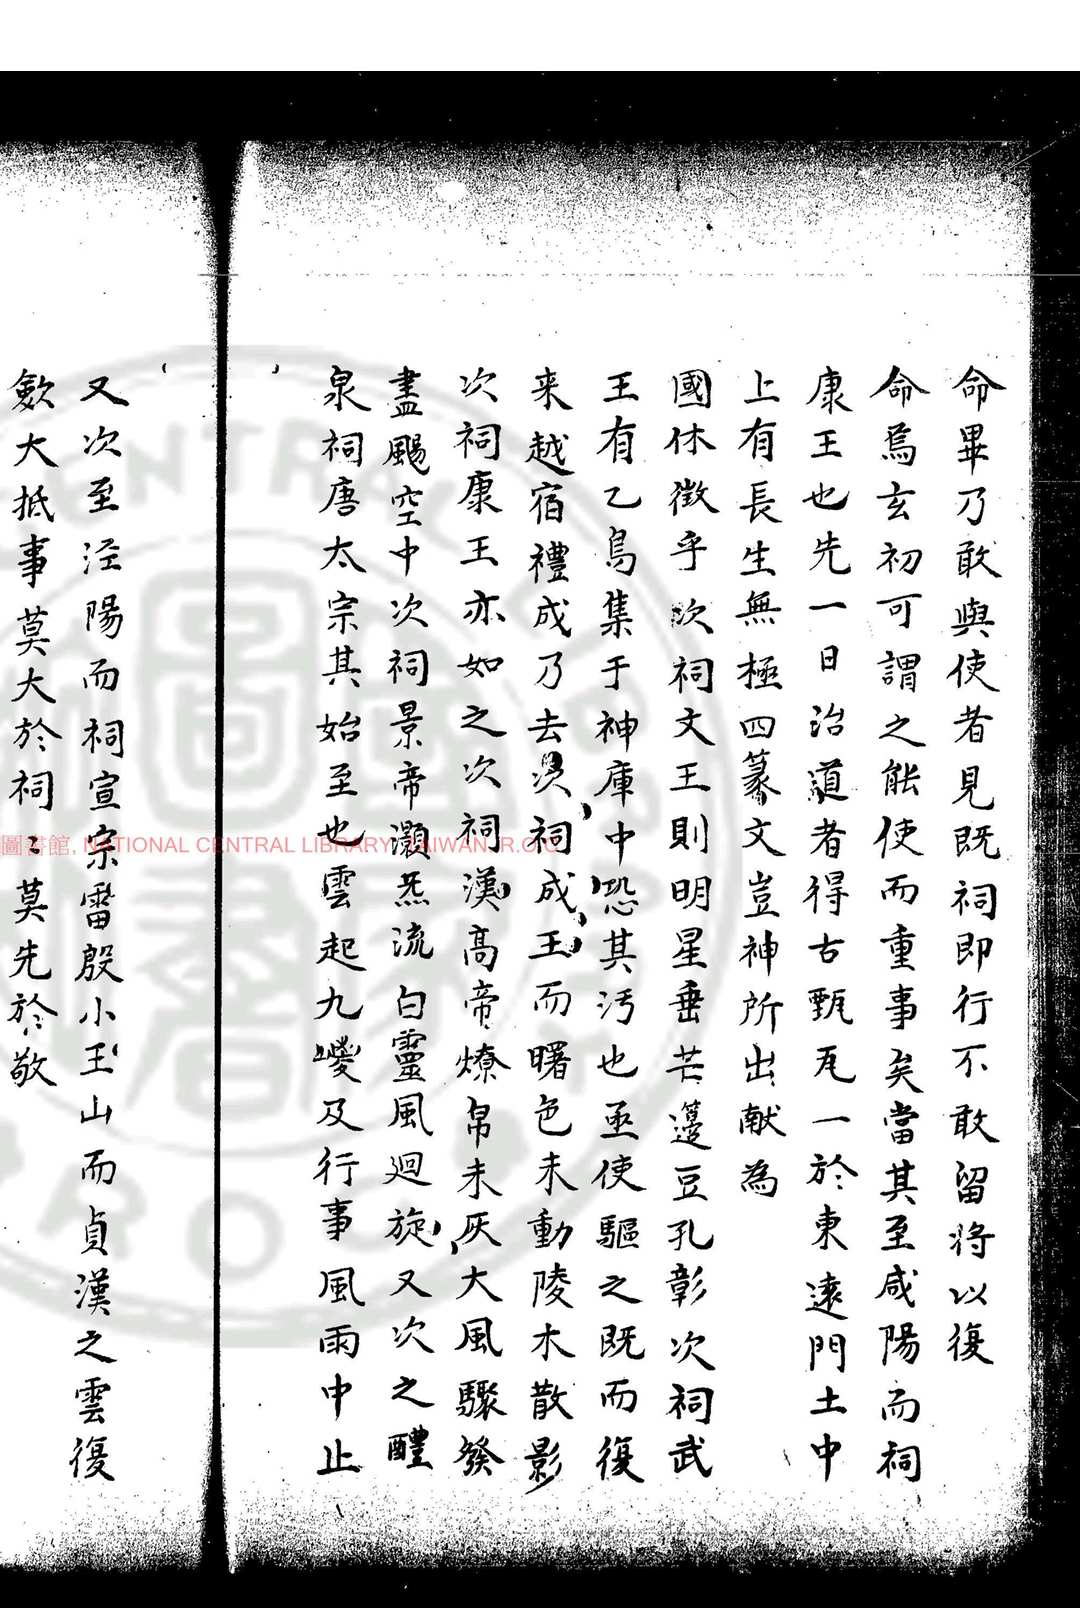 命畢乃敢與使者見既祠即行不敢留將以復
命焉玄初可謂之能使而重事矣當其至咸陽而祠
康王也先一日治道者得古甄瓦一於東遠門土中
上有長生無極四篆文豈神所出献為
國休徵乎次祠文王則明星垂芒籩豆孔彰次祠武
王有乙鳥集于神庫中恐其污也亟使驅之既而復
来越宿禮成乃去次祠成王而曙色未動陵木散影
次祠康王亦如之次祠漢高帝燎帛未灰大風驟發
盡颺空中次祠景帝灝炁流白靈風迴旋又次之醴
泉祠唐太宗其始至也雲起九嵕及行事風雨中止
又次至涇陽而祠宣宗雷殷小王山而貞漢之雲復
歛大抵事莫大於祠〻莫先於敬
圖書館, NATIONAL CENTRAL LIBRARY, TAIWAN, R.O.C